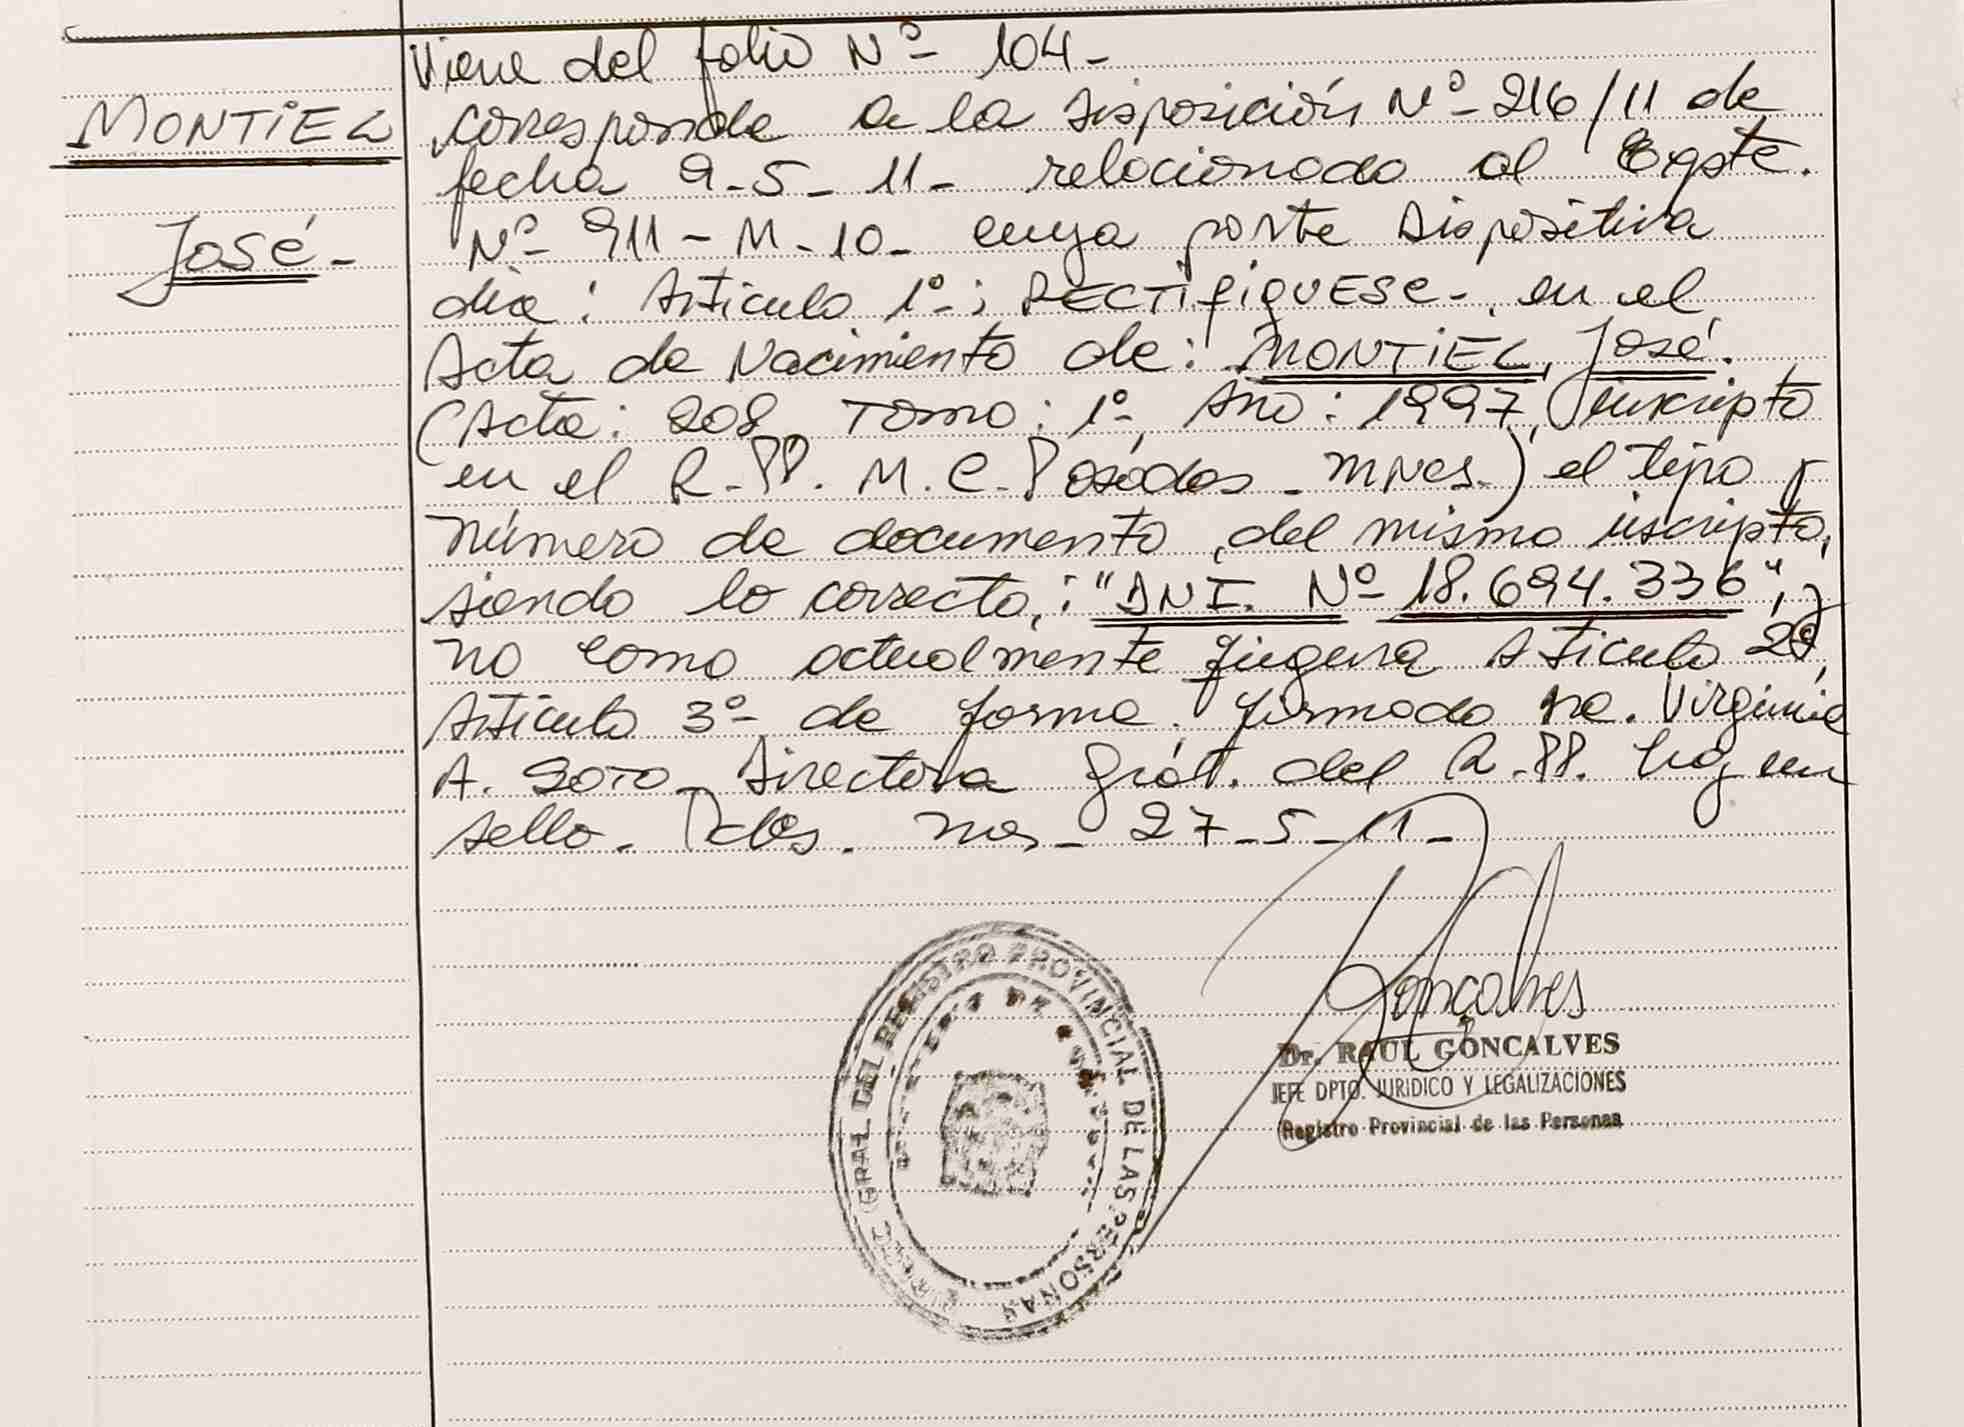 Viene del folio Nº 104-
MONTIEL
José-
corresponde a la Disposición Nº-216/11 de
fecha 9-5-11- relacionado al Expte.
Nº- 911-M-10- cuya parte dispositiva
dice: Artículo 1º-; RECTIFIQUESE-, en el
Acta de Nacimiento de: MONTIEL, José.
(Acta: 208, Tomo: 1º-, Año: 1997, inscripto
en el R.PP. M.C. Posadas - MNES.) el tipo y
número de documento, del mismo iscripto,
siendo lo correcto,: "DNI. Nº 18.694.336", y
no como actualmente figura Artículo 2º,
Artículo 3º- de forma. firmado Virginia
A. Soto Directora Gral. del R.PP. hay un
sello. Pdas. 27-5-11-
Gonçalves
Dr. RAUL GONCALVES
JEFE DPTO. JURIDICO Y LEGALIZACIONES
Registro Provincial de las Personas
GRAL DEL REGISTRO PROVINCIAL DE LAS PERSONAS